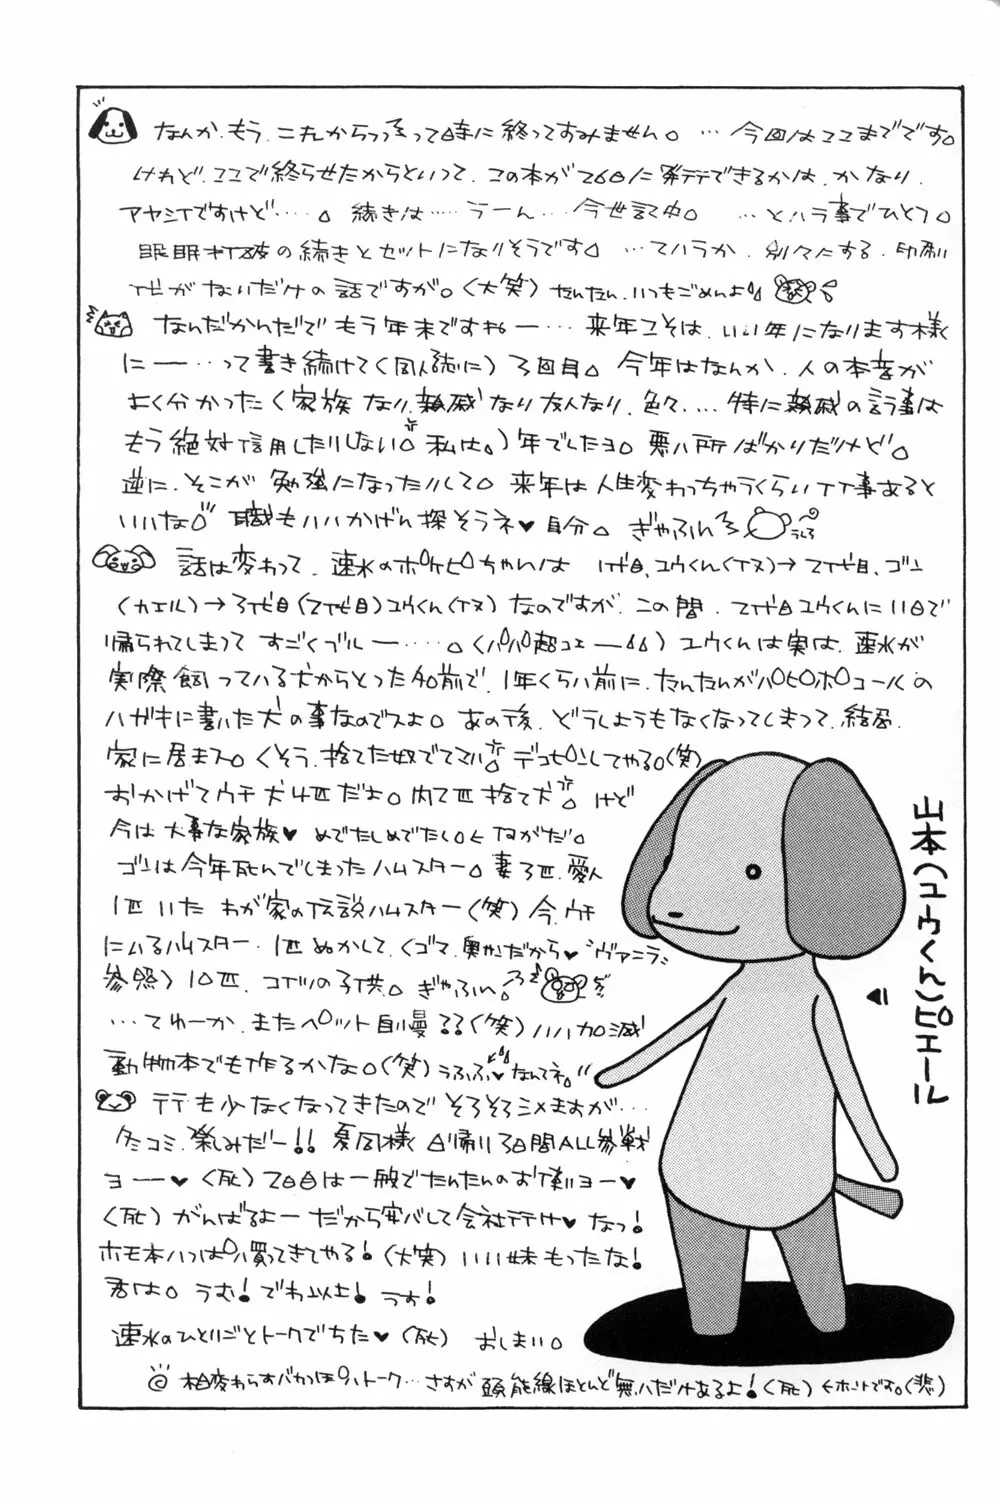 なんか、もう、これからっつって時に終ってすみません。… 今回はここまでです。
けれど、ここで終らせたからといって、この本が26日に発行できるかは、かなり、
アヤシイですけど……。続きは……うーん…今世記中。…という事でひとつ。
眠眠打破の続きとセットになりそうです。…ていうか、別々にする、印刷
代がないだけの話ですが。(大笑) たんたん、いつもごめんよ
なんだかんだでもう年末ですねー… 来年こそは、いい年になります様
に―…って書き続けて(同人誌に)3回目。今年はなんか、人の本音が
よく分かった(家族なり、親戚なり友人なり、色々…特に親戚の言う事は
もう絶対信用したりしない。私は。)年でしたヨ。悪い所ばかりだけど。
逆に、そこが勉強になったりして。来年は人生変わっちゃうくらいイイ事あると
いいな。職もいいかげん探そうネ♥自分。ぎゃふん
話は変わって、速水のポケピちゃんは 1代目、ユウくん(イヌ)→2代目、ゴン
(カエル)→3代目(2代目)ユウくん(イヌ)なのですが、この間、2代目ユウくんに11日で
帰られてしまって すごくブルー……。(パパ超コエー) ユウくんは実は、速水が
実際飼っている犬からとった名前で、1年くらい前に、たんたんがパピポコールの
ハガキに書いた犬の事なのでスよ。あの後、どうしようもなくなってしまって、結局、
家に居まス。くそう、捨てた奴でてこい。デコピンしてやる。(笑)
おかげでウチ犬4匹だよ。内2匹捨て犬。けど
今は大事な家族♥ めでたしめでたし。←ながだ。
ゴンは今年死んでしまったハムスター。妻3匹、愛人
1匹いた わが家の伝説ハムスター(笑) 今、ウチ
にいるハムスター、1匹ぬかして、(ゴマ、奥がだから♥"ヴァニラ"
参照) 10匹、コイツの子供。ぎゃふん。
…てゆーか、またペット自慢??(笑) いい加減
動物本でも作るかな。(笑) うふふ♥なんてネ。
行も少なくなってきたので そろそろシメますが…
冬コミ、楽しみだー!! 夏同様 日帰り3日間ALL参戦
ヨー♥(死) 2日目は一般でたんたんのお使いヨー♥
(死) がんばるよー だから安バして会社行け♥なっ!
ホモ本いっぱい買ってきてやる!(大笑) いい妹もったな!
君は。うむ!でわ以上!うす!
速水のひとりごとトークでちた♥(死) おしまい。
◎相変わらずバカっぽいトーク…さすが頭脳線ほとんど無いだけあるよ!(死)←ホントです。(悲)
山本(ユウくん)ピエール